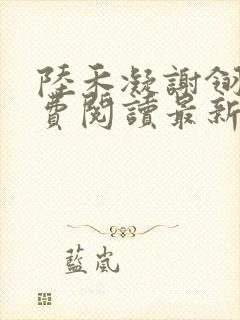 陸天凝謝釼
費閱讀最新
藍嵐